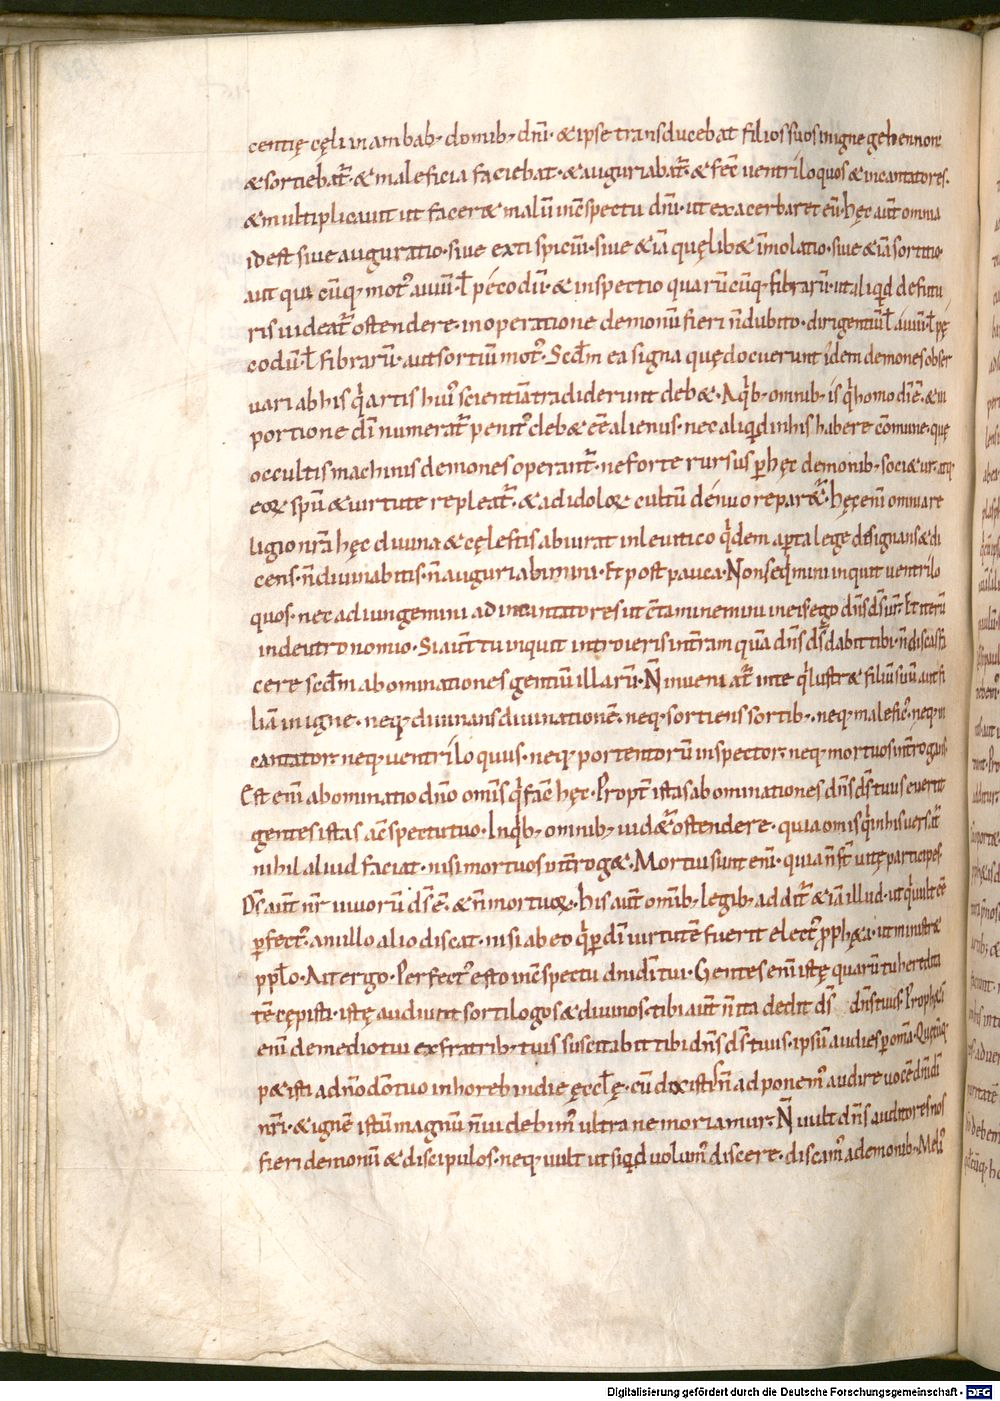 centię cęli in ambab; domib; dnī· & ipse transducebat filios suos in igne gehennom
& sortiebat᷑· & maleficia faciebat· & auguriabat᷑· & fec̄ ventriloquos & incantatores·
& multiplicavit ut facer& malū in c̄spectu dnī· ut exacerbaret eū· hęc aut̄ omnia
id est sive auguratio· sive extispiciū· sive &iā quęlib& īmolatio· sive &iā sortitio·
aut qui cūq; mot' aviū· ł pecodū· & inspectio quarūcūq; fibrarū· ut aliqd de futu
ris videat᷑ ostendere· in operatione demonū fieri n̄ dubito· dirigentiū ł aviū· ł pę
codū· ł fibrarū· aut sortiū mot'· Scdm ea signa quę docuerunt idem demones obser
vari ab his q̇ artis hui' scientiā tradiderunt· deb&· A qb; omnib; is q̇ homo dī ē· & in
portione dī numerat᷑ penit' deb& eē alienus· nec aliqd in his habere cōmune· quę
occultis machinis demones operant᷑· ne forte rursus p hęc demonib; soci&ur· atq;
eoꝝ spū & virtute repleat᷑· & ad idoloꝝ cultū denuo repar&᷑· hęc enī omnia re
ligio nr̄a hęc divina & cęlestis abiurat in levitico q̇dem aperta lege designans & di
cens· n̄ divinabitis· n̄ auguriabimini· Et post pauca· Non seqmini inquit ventrilo
quos· nec adiungemini ad incantatores ut c̄taminemini in eis· ego dn̄s ds̄ ur̄· Et iterū
in deutronomio· Si aut̄ tu inquit introieris in terram quā dn̄s ds̄ dabit tibi· n̄ discas fa
cere scdm abominationes gentiū illarū· N̄ inveniat᷑ in te q̇ lustr& filiū suū aut fi
liā in igne· neq; divinans divinationē· neq; sortiens sortib;· neq; malefic'· neq; in
cantator· neq; ventriloquus· neq; portentorū inspector· neq; mortuos introgans·
Est enī abominatio dn̄o omīs q̇ facit hęc· Propt̄ istas abominationes dn̄s ds̄ tuus evertit
gentes istas a c̄spectu tuo· In qb; omnib; vid&᷑ ostendere· quia omīs q̇ in his versat᷑
nihil aliud faciat· nisi mortuos introg&· Mortui sunt enī· quia n̄ st̄ vitę participes·
Ds̄ aut̄ nr̄ vivorū ds̄ ē· & n̄ mortuoꝝ· his aut̄ omib; legib; addit᷑ &iā illud· ut q̇ vult eē
pfect'· a nullo alio discat· nisi ab eo q̇ p dī virtutē fuerit elect' pph&a· ut ministr&
pplo· Ait ergo· Perfect' esto in c̄spectu dnī dī tui· Gentes enī istę quarū tu heredita
tē cępisti· istę audiunt sortilogos & divinos· tibi aut̄ n̄ ita dedit ds̄ dn̄s tuus· Proph&ā
enī de medio tui ex fratrib; tuis suscitabit tibi dn̄s ds̄ tuus· ipsū audies p omīa· Quęcūq;
p&isti a dn̄o dō tuo in horeb in die ęccłę· cū dixisti n̄ adponem' audire vocē dnī dī
nr̄i· & ignē istū magnū n̄ videbim' ultra ne moriamur· N̄ vult dn̄s auditores nos
fieri demonū & discipulos· neq; vult ut siqd volum' discere· discam' a demonib; Meli'
Digitalisierung gefördert durch die Deutsche Forschungsgemeinschaft - DFG